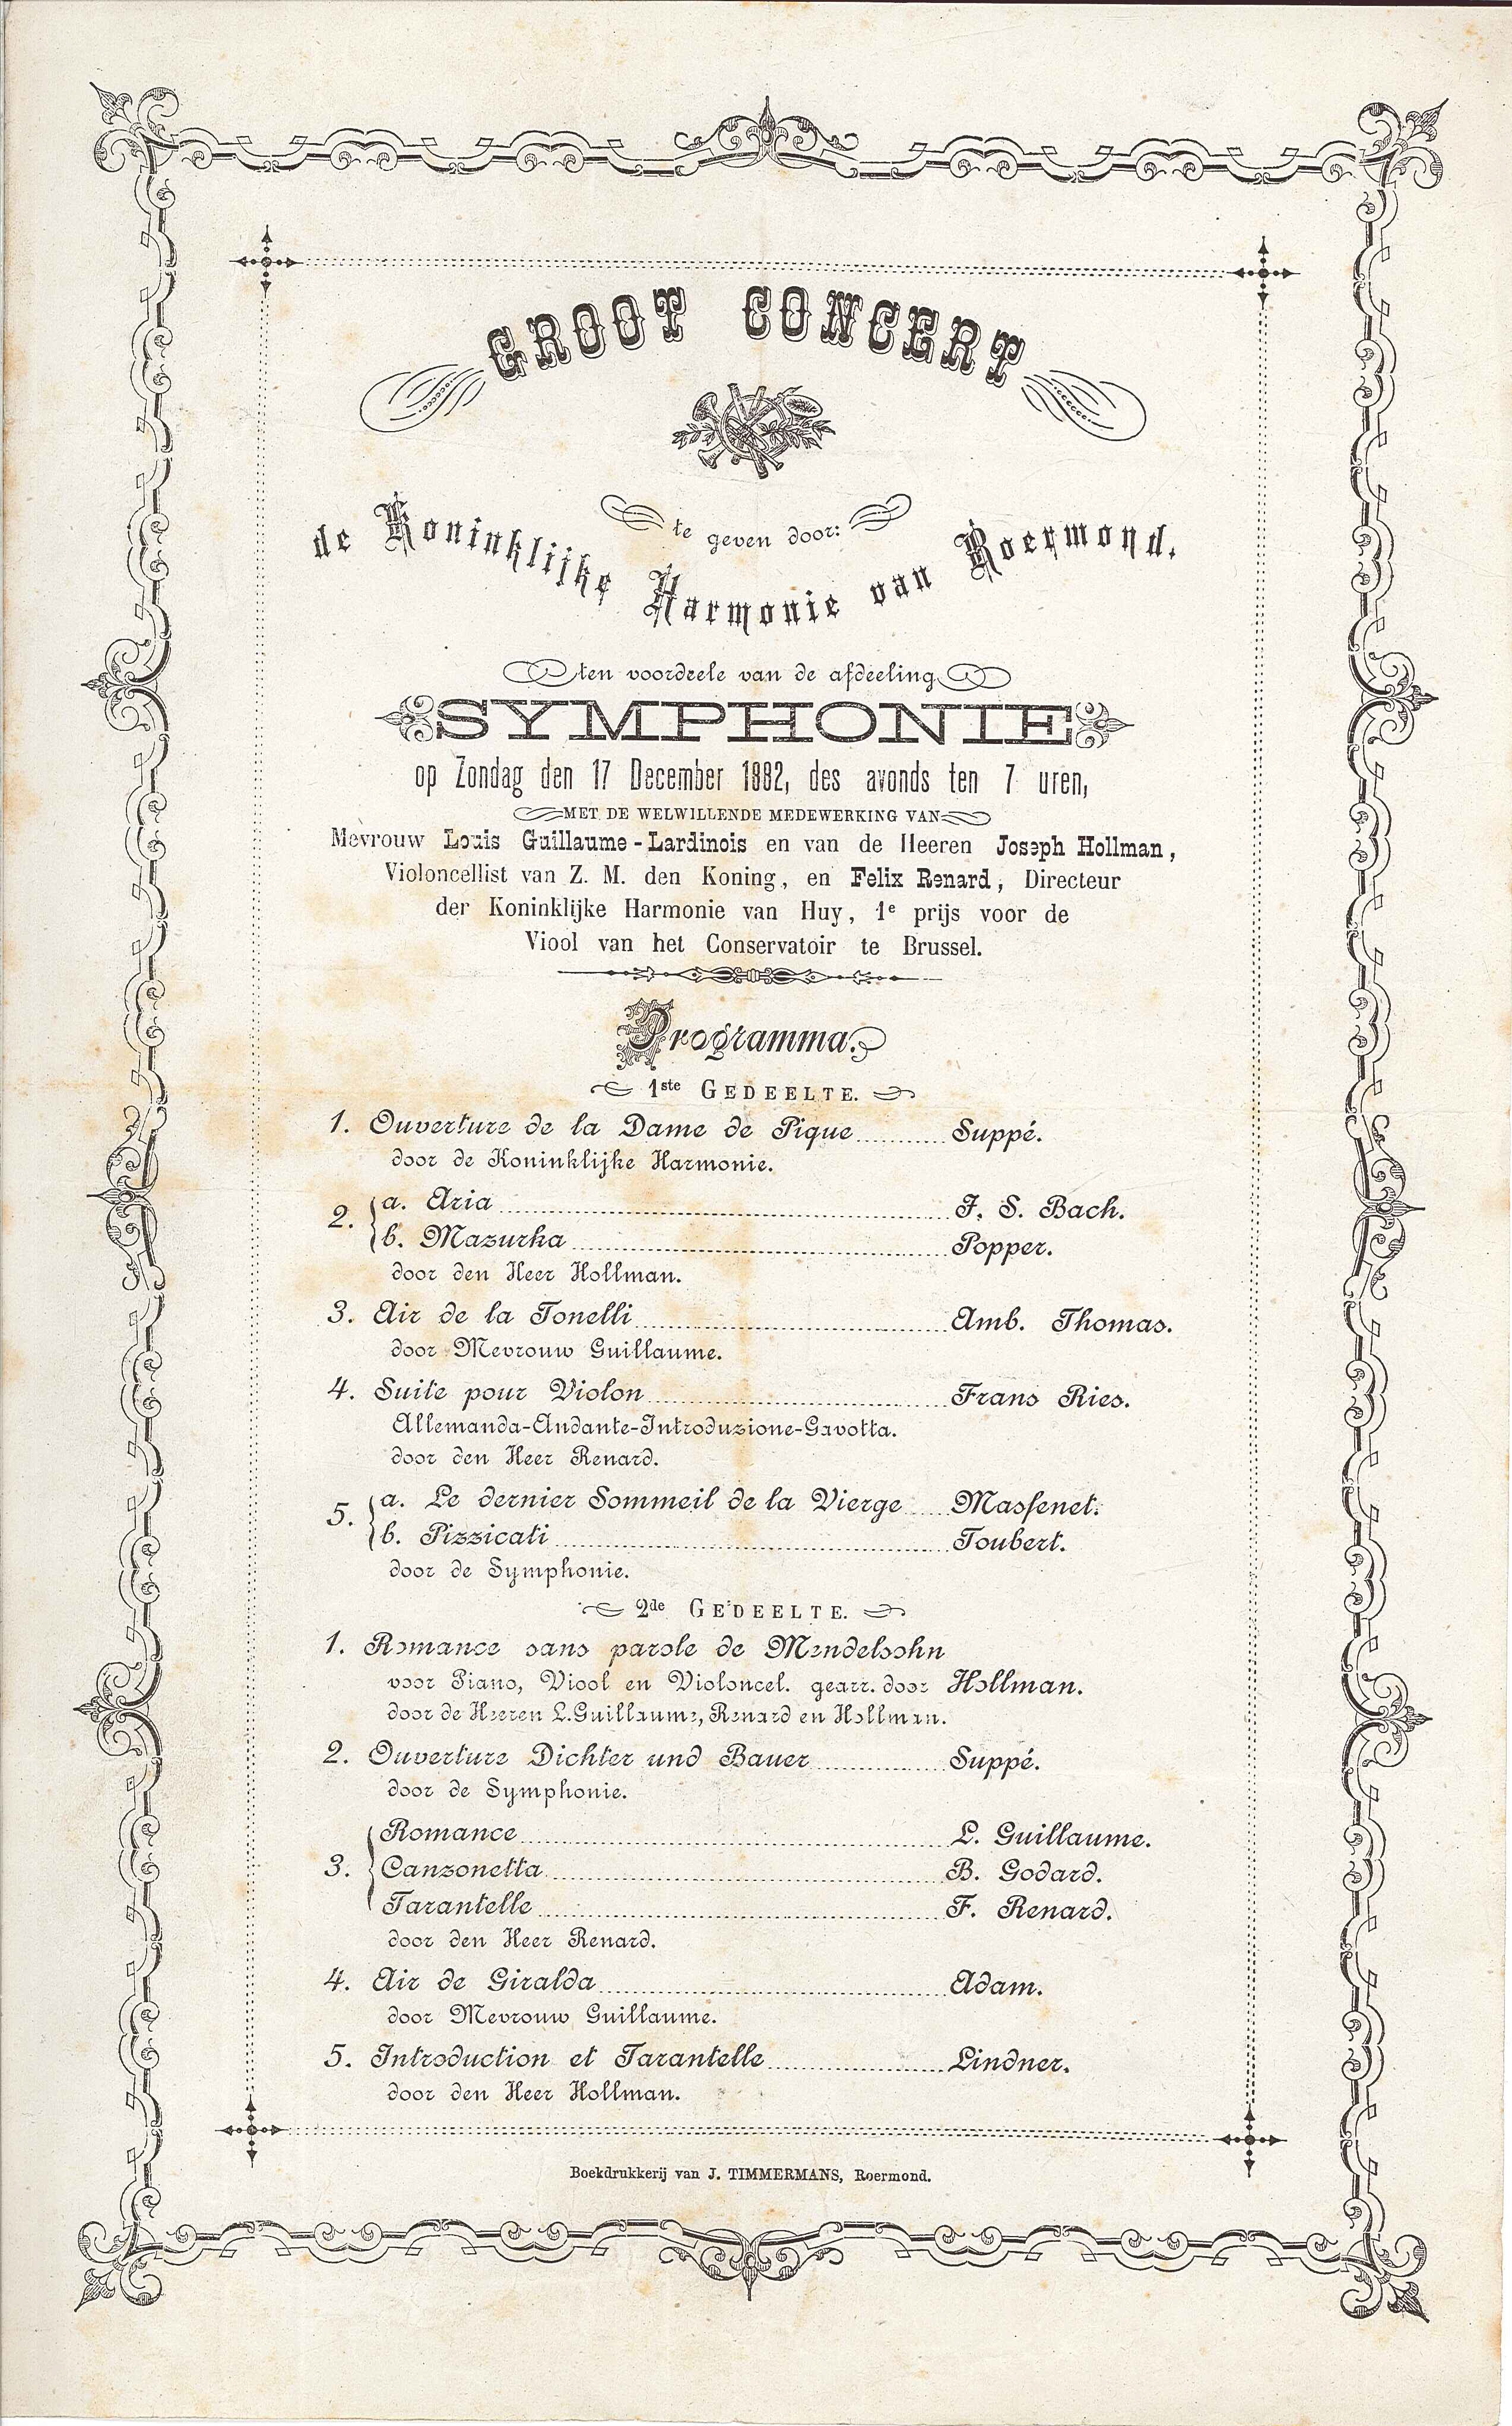 GROOT CONCERT
te geven door:
de Koninklijke Harmonie van Roermond.
ten voordeele van de afdeeling
SYMPHONIE
op Zondag den 17 December 1882, des avonds ten 7 uren,
MET DE WELWILLENDE MEDEWERKING VAN
Mevrouw Louis Guillaume-Lardinois en van de Heeren Joseph Hollman,
Violoncellist van Z. M. den Koning, en Felix Renard, Directeur
der Koninklijke Harmonie van Huy, 1e prijs voor de
Viool van het Conservatoir te Brussel.
Programma.
1ste GEDEELTE.
1. Ouverture de la Dame de Pique.......... Suppé.
door de Koninklijke Harmonie.
2. a. Aria.......... J. S. Bach.
b. Mazurka.......... Popper.
door den Heer Hollman.
3. Air de la Tonelli.......... Amb. Thomas.
door Mevrouw Guillaume.
4. Suite pour Violon.......... Frans Ries.
Allemanda-Andante-Introduzione-Gavotta.
door den Heer Renard.
5. a. Le dernier Sommeil de la Vierge..... Masſenet.
b. Pizzicati.......... Toubert.
door de Symphonie.
2de GEDEELTE.
1. Romance sans parole de Mendelsohn
voor Piano, Viool en Violoncel. gearr. door Hollman.
door de Heeren L. Guillaume, Renard en Hollman.
2. Ouverture Dichter und Bauer.......... Suppé.
door de Symphonie.
Romance.......... L. Guillaume.
3. Canzonetta.......... B. Godard.
Tarantelle.......... F. Renard.
door den Heer Renard.
4. Air de Giralda.......... Adam.
door Mevrouw Guillaume.
5. Introduction et Tarantelle.......... Lindner.
door den Heer Hollman.
Boekdrukkerij van J. TIMMERMANS, Roermond.